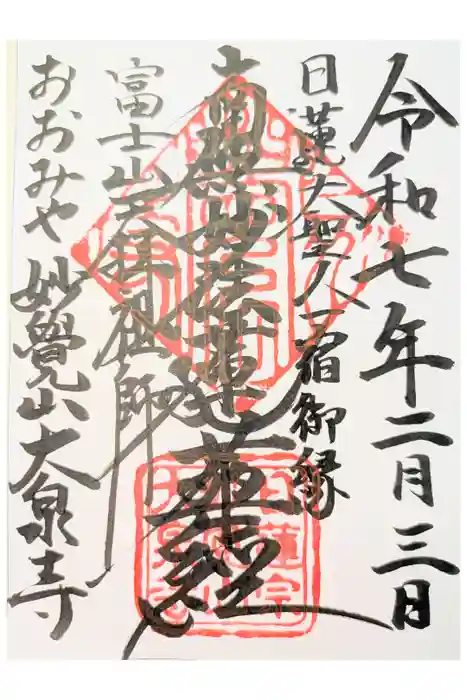 令和七年二月三日
日蓮大聖人一宿御縁
南無妙法蓮華経
富士山天拝祖師
おおみや 妙覺山大泉寺
日蓮宗